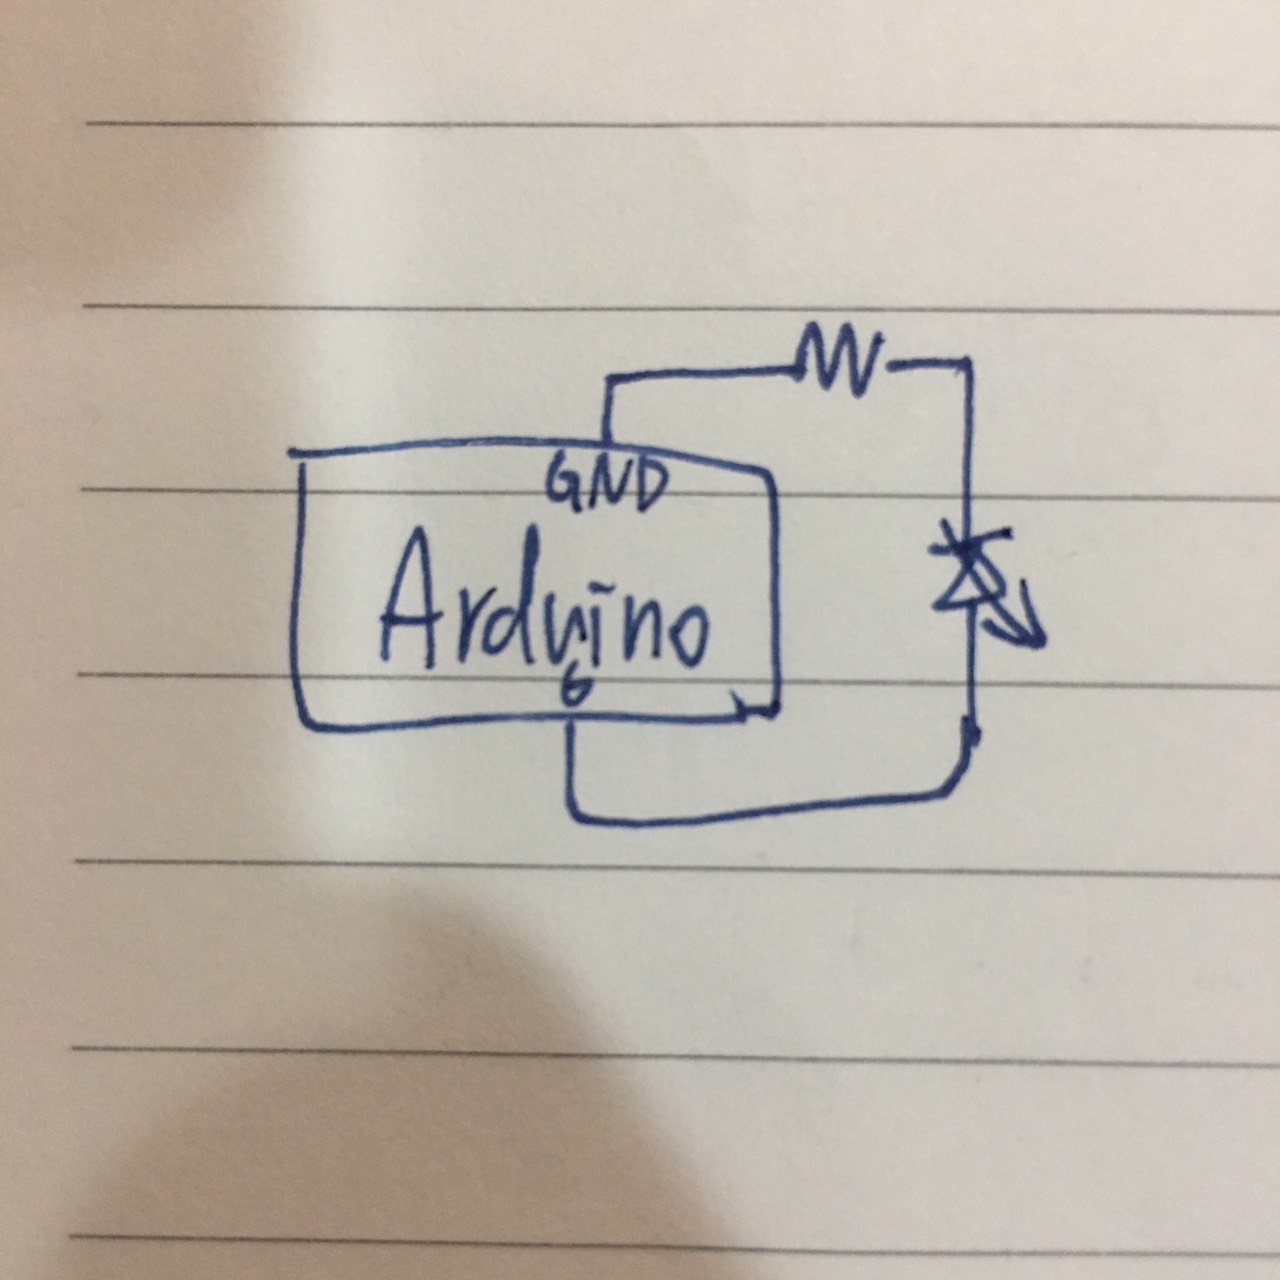 GND
Arduino
6